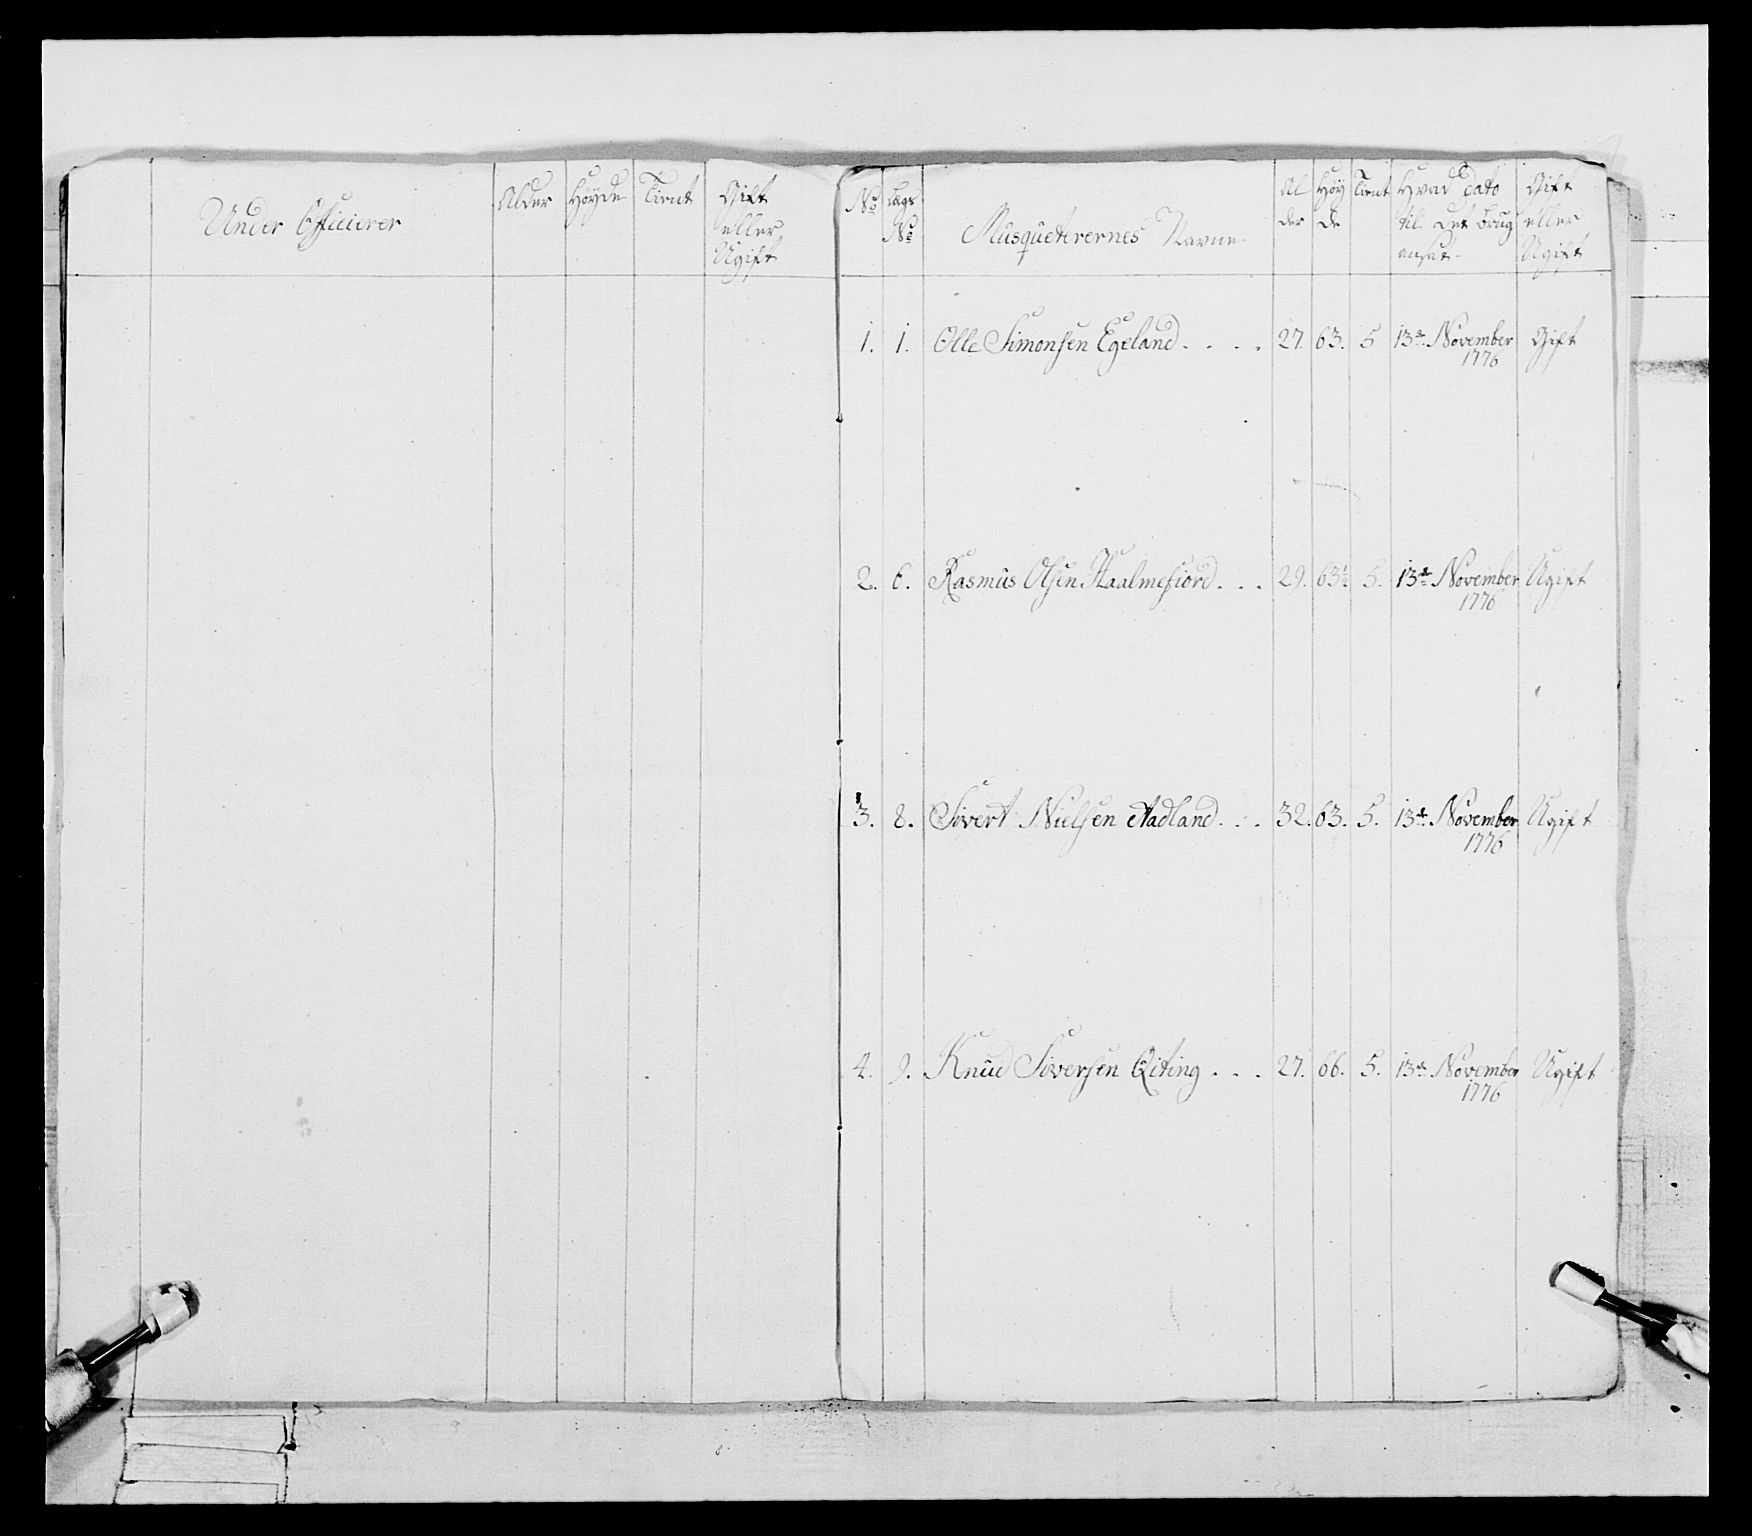 Under Officierer
Alder
Høyde
Tient
Gift
eller
Ugift
No
Lægs
No
Musqueterernes Navne
Al
der
Høy
de
Tient
Hvad Dato
til det brug
ansat
Gift
eller
Ugift
1. 1. Olle Simonsen Egeland . . . . 27. 63. 5 13de November Gift
1776
2. 6. Rasmus Olsen Haalmefiord . . . 29. 63½ 5. 13de November Ugift
1776
3. 8. Sivert Nielsen Aadland . . . 32. 63. 5. 13de November Ugift
1776
4. 9. Knud Siversen Qiting . . . 27. 66. 5. 13de November Ugift
1776